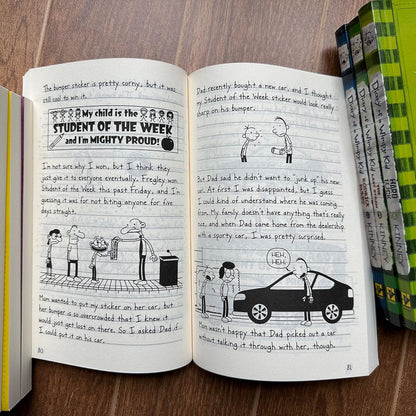 The bumper sticker is pretty corny, but it was
still cool to win it.
My child is the
STUDENT OF THE WEEK
and I'm MIGHTY PROUD!
I'm not sure why I won, but I think they
just give it to everyone eventually. Fregley won
Student of the Week this past Friday, and I'm
guessing it was for not biting anyone for five
days straight.
Mom wanted to put my sticker on her car, but
her bumper is so overcrowded that I knew it
would just get lost on there. So I asked Dad if
I could put it on his car.
80
Dad recently bought a new car, and I thought
my Student of the Week sticker would look really
sharp on his bumper.
But Dad said he didn't want to "junk up" his new
car. At first I was disappointed, but I guess
I could kind of understand where he was coming
from. My family doesn't have anything that's really
nice, and when Dad came home from the dealership
with a sporty car, I was pretty surprised.
HEH,
HEH.
Mom wasn't happy that Dad picked out a car
without talking it through with her, though.
81
Diary of a Wimpy Kid
KINNEY